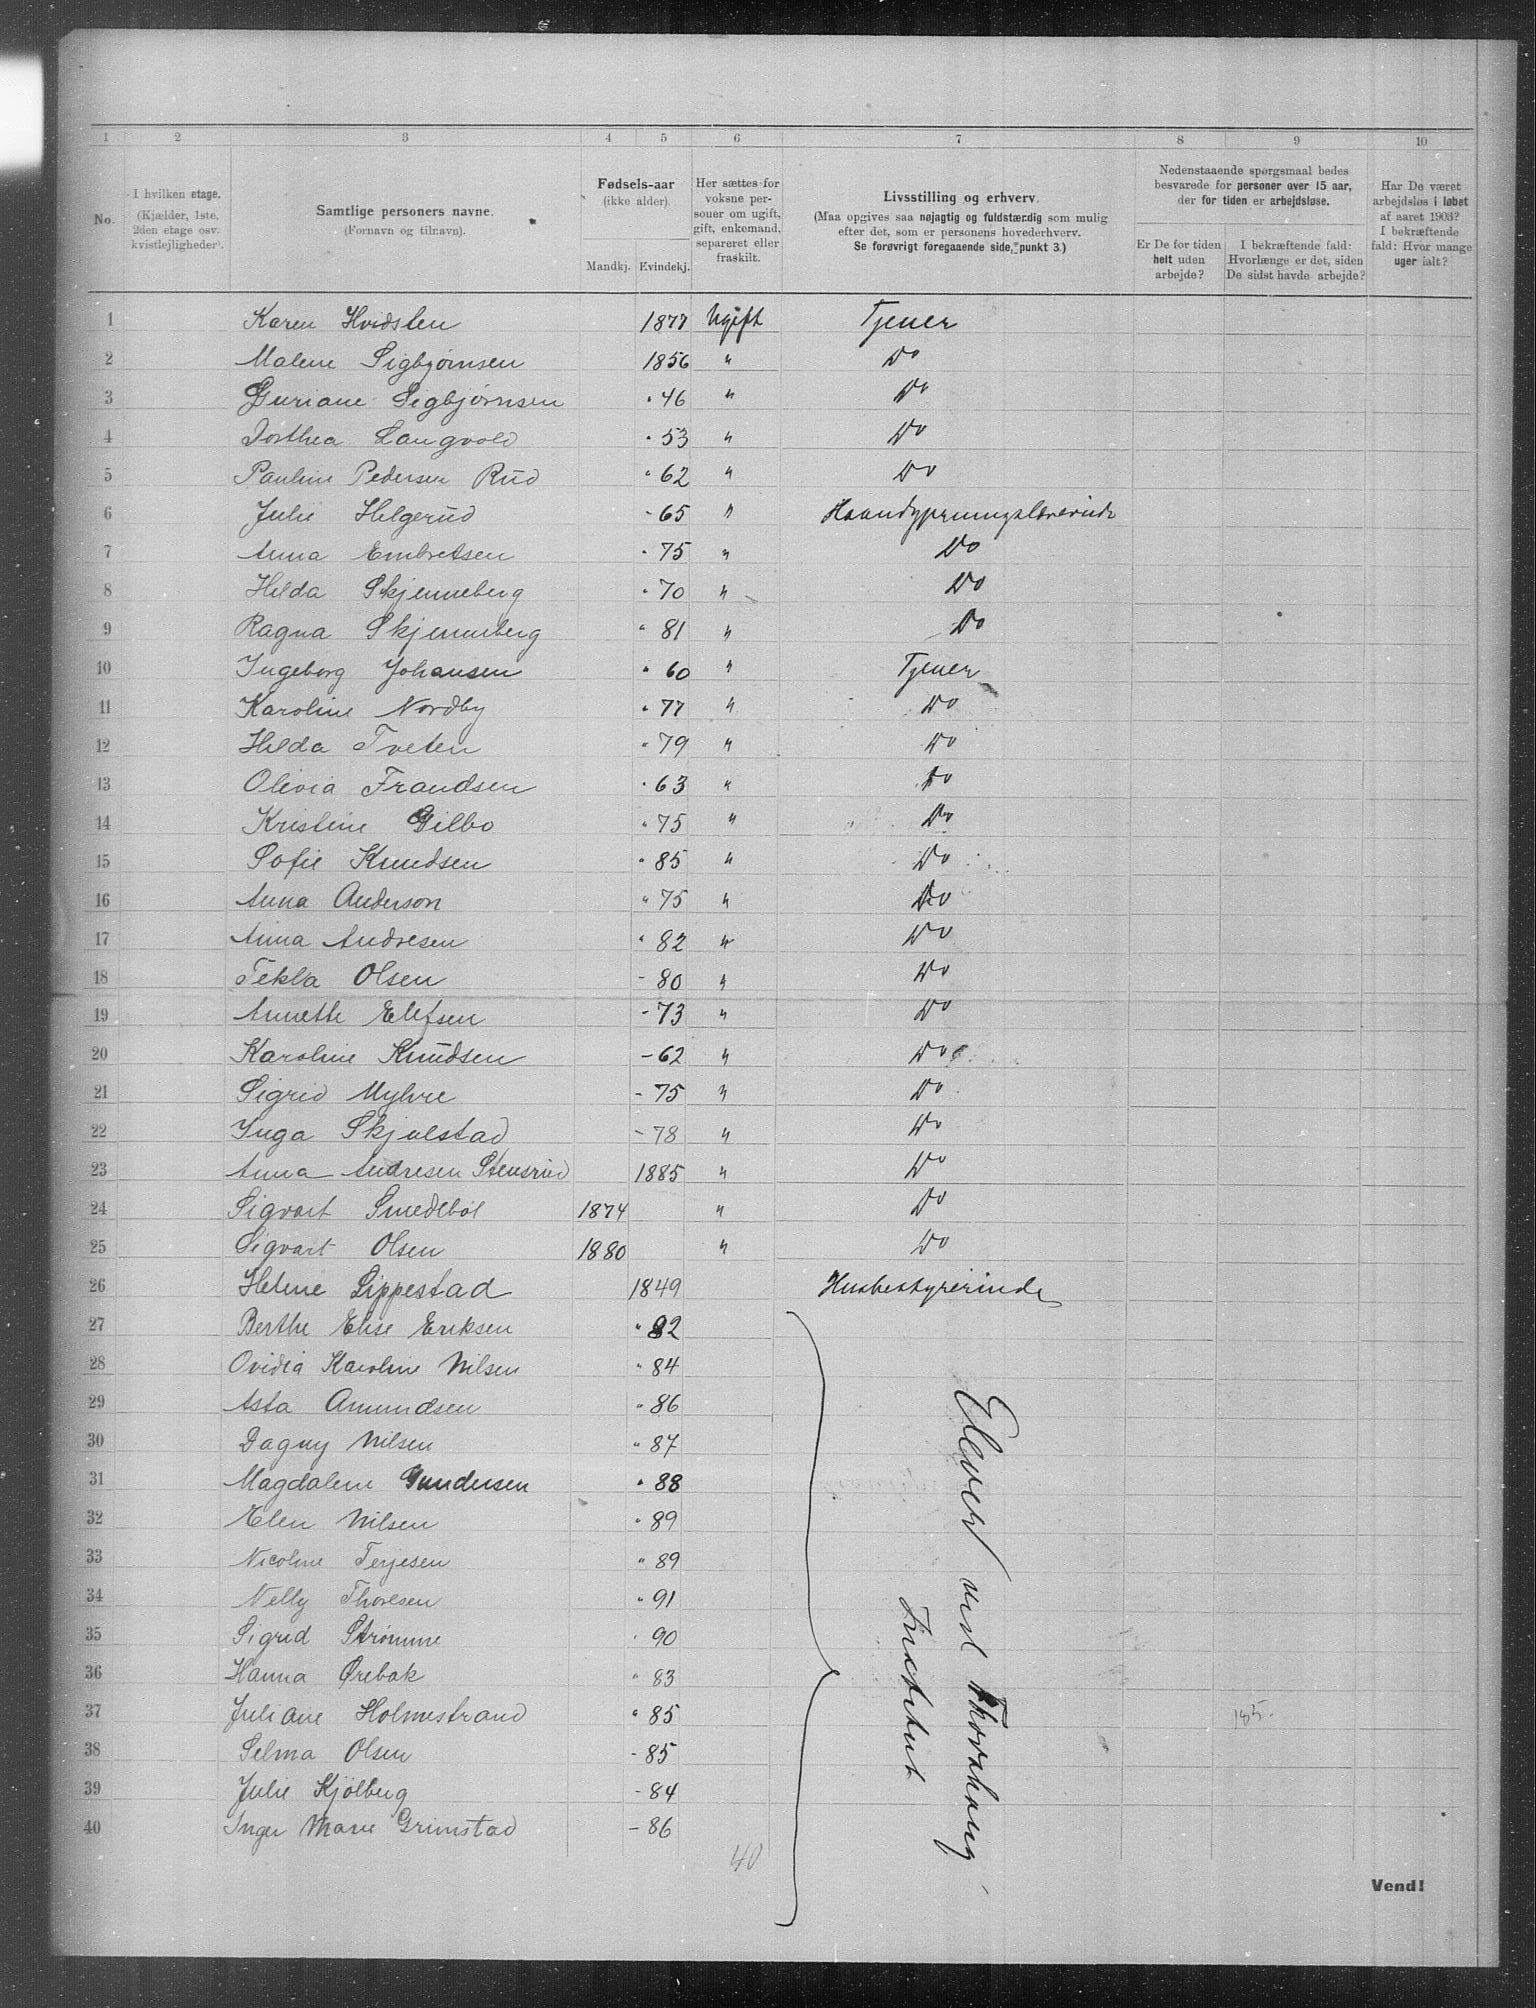 1 2 3 4 5 6 7 8 9 10
No. I hvilken etage. (Kjælder, 1ste, 2den etage osv. kvistleiligheder). Samtlige personers navne. (Fornavn og tilnavn). Fødsels-aar (ikke alder). Mandkj. Kvindekj. Her sættes for voksne personer om ugift, gift, enkemand, separeret eller fraskilt. Livsstilling og erhverv. (Maa opgives saa nøjagtig og fuldstændig som mulig efter det, som er personens hovederhverv. Se forøvrigt foregaaende side, punkt 3.) Nedenstaaende spørgsmaal bedes besvarede for personer over 15 aar, der for tiden er arbejdsløse. Er De for tiden helt uden arbejde? I bekræftende fald: Hvorlænge er det, siden De sidst havde arbejde? Har De været arbejdsløs i løbet af aaret 1903? I bekræftende fald: Hvor mange uger ialt?
1 Karen Hvidsten 1877 Ugift Tjener
2 Malene Sigbjørnsen 1856 " Do
3 Guriane Sigbjørnsen " 46 " Do
4 Dorthea Langvold " 53 " Do
5 Pauline Pedersen Rud " 62 " Do
6 Julie Helgerud - 65 " Haandgjerningslærerinde
7 Anna Embretsen " 75 " Do
8 Hilda Skjenneberg " 70 " Do
9 Ragna Skjenneberg " 81 " Do
10 Ingeborg Johansen " 60 " Tjener
11 Karoline Nordby " 77 " Do
12 Hilda Tveten " 79 " Do
13 Olivia Frandsen " 63 " Do
14 Kristine Gilbo " 75 " Do
15 Sofie Knudsen " 85 " Do
16 Anna Anderson " 75 " Do
17 Anna Andresen " 82 " Do
18 Tekla Olsen - 80 " Do
19 Annette Elefsen - 73 " Do
20 Karoline Knudsen - 62 " Do
21 Sigrid Myhre - 75 " Do
22 Inga Skjulstad - 78 " Do
23 Anna Andresen Stensrud 1885 " Do
24 Sigvart Smedbøl 1874 " Do
25 Sigvart Olsen 1880 " Do
26 Helene Lippestad 1849 Husbestyrerinde
27 Berthe Elise Eriksen " 82
28 Ovidia Karoline Nilsen " 84
29 Asta Amundsen " 86
30 Dagny Nilsen " 87
31 Magdalene Gundersen " 88
32 Elen Nilsen " 89
33 Nicoline Terjesen " 89
34 Nelly Thoresen " 91
35 Sigrid Strømme " 90
36 Hanna Ørebak " 83
37 Juliane Holmestrand " 85 185.
38 Selma Olsen - 85
39 Julie Kjølberg - 84
40 Inger Marie Grimstad - 86
Elever ved Thorshaug
Institut
40
Vend!